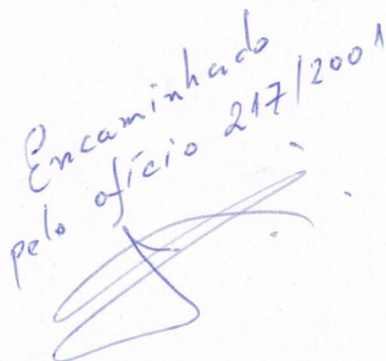 Encaminhado
pelo ofício 217/2001